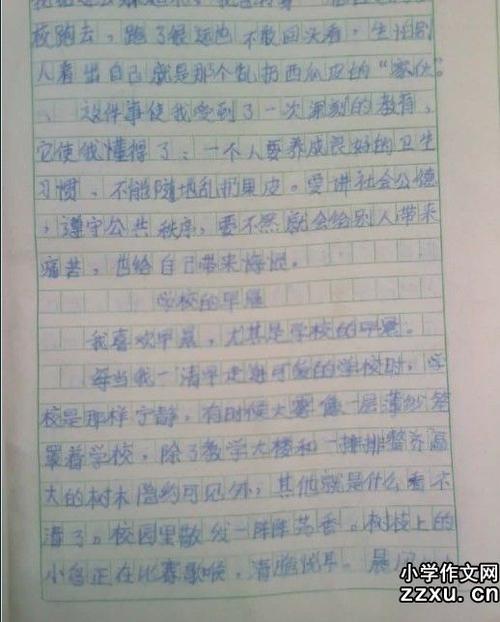 校跑去，跑了很远也不敢回头看，生怕别
人看出自己就是那个乱扔西瓜皮的“家伙”。
这件事使我受到了一次深刻的教育，
它使我懂得了：一个人要养成良好的卫生
习惯，不能随地乱扔果皮。要讲社会公德
，遵守公共秩序，要不然就会给别人带来
痛苦，也给自己带来悔恨。
学校的早晨
我喜欢早晨，尤其是学校的早晨。
每当我一清早走进可爱的学校时，学
校是那样宁静，有时候大雾像一层薄纱笼
罩着学校，除了教学大楼和一排排整齐高
大的树木隐约可见外，其他就是什么看不
清了。校园里散发一阵阵芳香。树枝上的
小鸟正在比赛歌喉，清脆悦耳。晨风
小学作文网
zzxu.cn